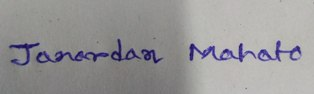 Janardan Mahato